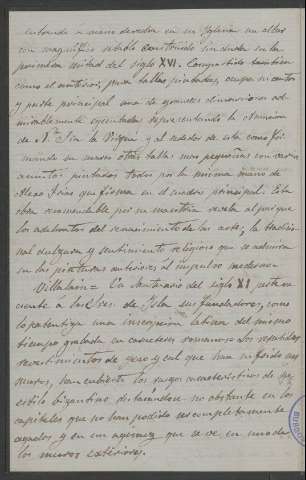 entrando a mano derecha en su Iglesia un altar
con magnifico retablo construido sin duda en la
primera mitad del siglo XVI. Compartido tambien
como el anterior, pinta tallas pintadas, ocupa su centro
y parte principal una de grandes dimensiones ad-
mirablemente ejecutada representando la Asuncion
de N.ª Sra. la Virgen, y al rededor de esta como for-
mando su marco otras tallas mas pequeñas con varios
asuntos pintados todos por la misma mano de
que figuran en el cuadro principal. Esta
obra recomendable por su maestria revela al par que
los adelantos del renacimiento de las artes, la tradicio-
nal dulzura y sentimiento religioso que se admira
en las pinturas anteriores al impulso moderno.
Villalain = Un Santuario del siglo XI perte-
neciente á los Sres. de Isla sus fundadores, como
lo patentiza una inscripcion latina del mismo
tiempo grabada en caracteres romanos. Los repetidos
revestimientos de yeso y cal que han sufrido sus
muros, han cubierto los rasgos caracteristicos de su
estilo bizantino destacandose no obstante en los
capiteles que no han podido ser completamente
tapados y en un agimez que se ve en uno de
los muros exteriores.